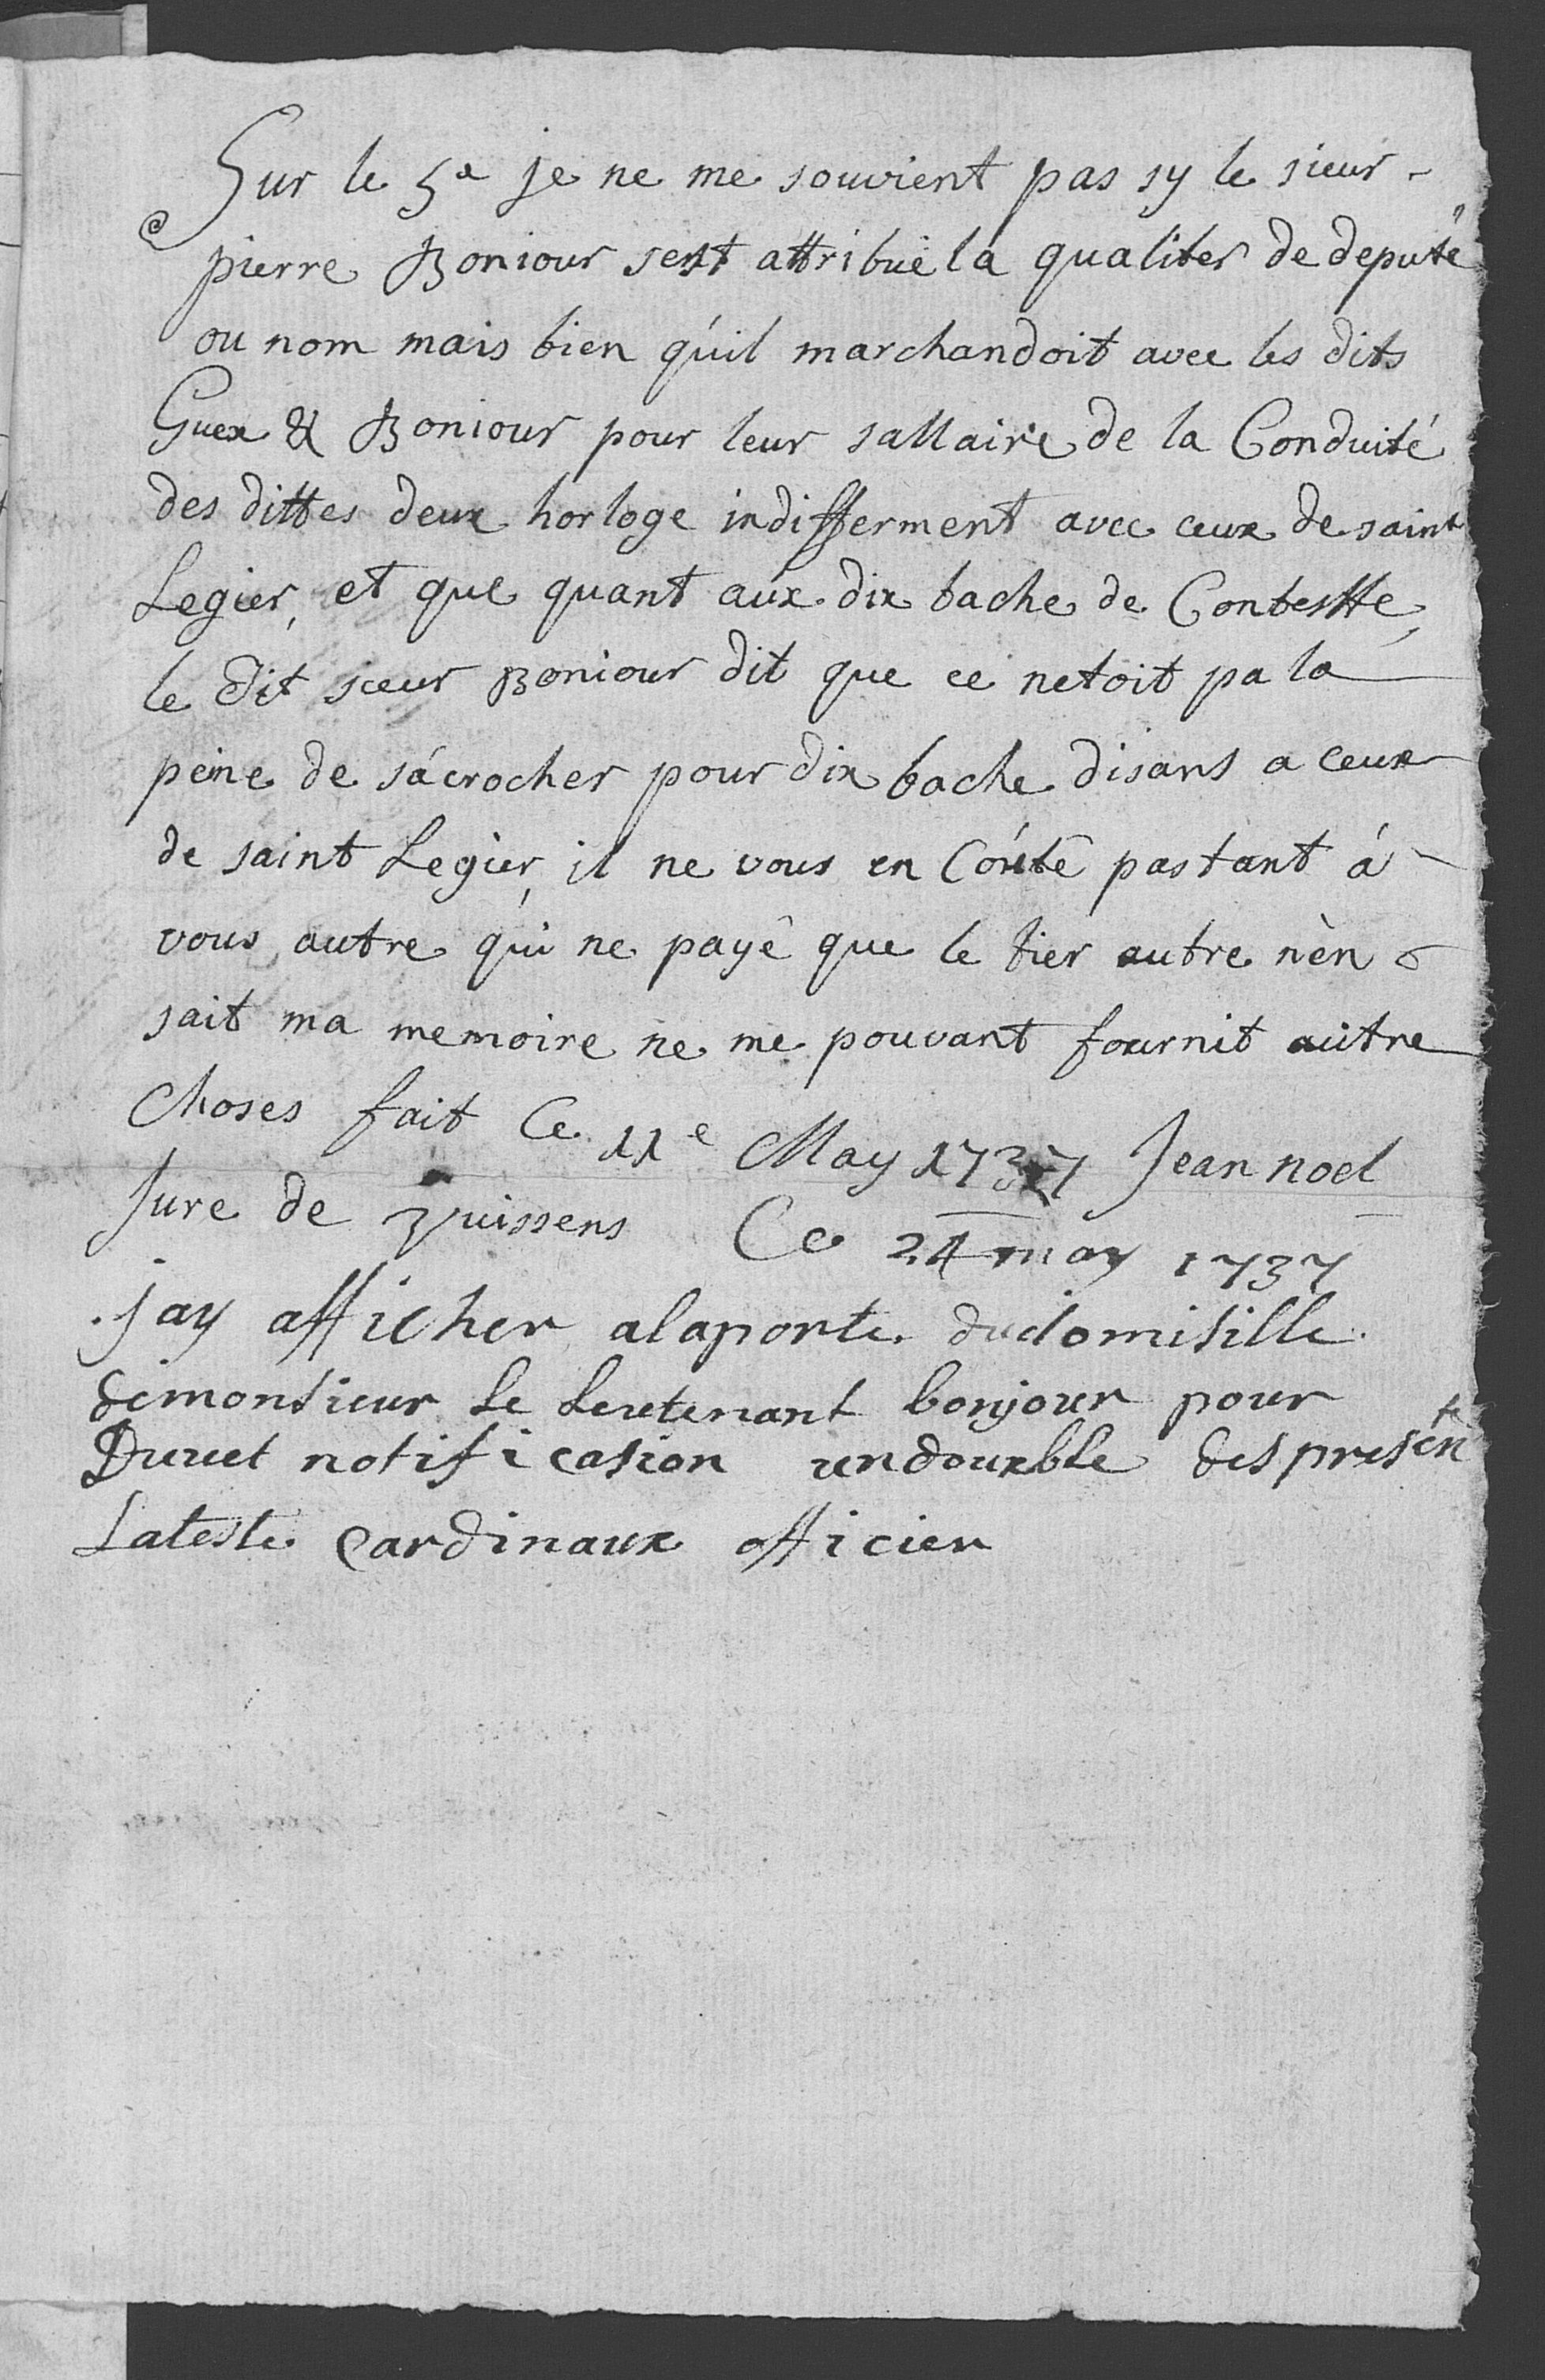 Sur le 5e je ne me souvient pas sy le sieur
pierre Boniour sest attribué la qualiter de deputé
ou nom mais bien qu'il marchandoit avec les dits
Guex & Boniour pour leur sallaire de la Conduité
des dittes deux horloge indifferment avec ceux de saint
Legier, et que quant aux dix bache de Contestte,
le dit sieur Boniour dit que ce netoit pa la
peine de sácrocher pour dix bache disans a ceux
de saint Legier, il ne vous en Coúte pas tant á
vous autre qui ne payê que le tier autre nèn
sait ma memoire ne me pouvant fournit autre
Choses fait Ce 11e May 1737 Jean noel
Jure de
Ce 24 may 1737
jay afficher alaporte dudomisille
demonsieur le Leutenant bonjour pour
Duuet notificasion undouxble des presente
Lateste Cardinaux officier